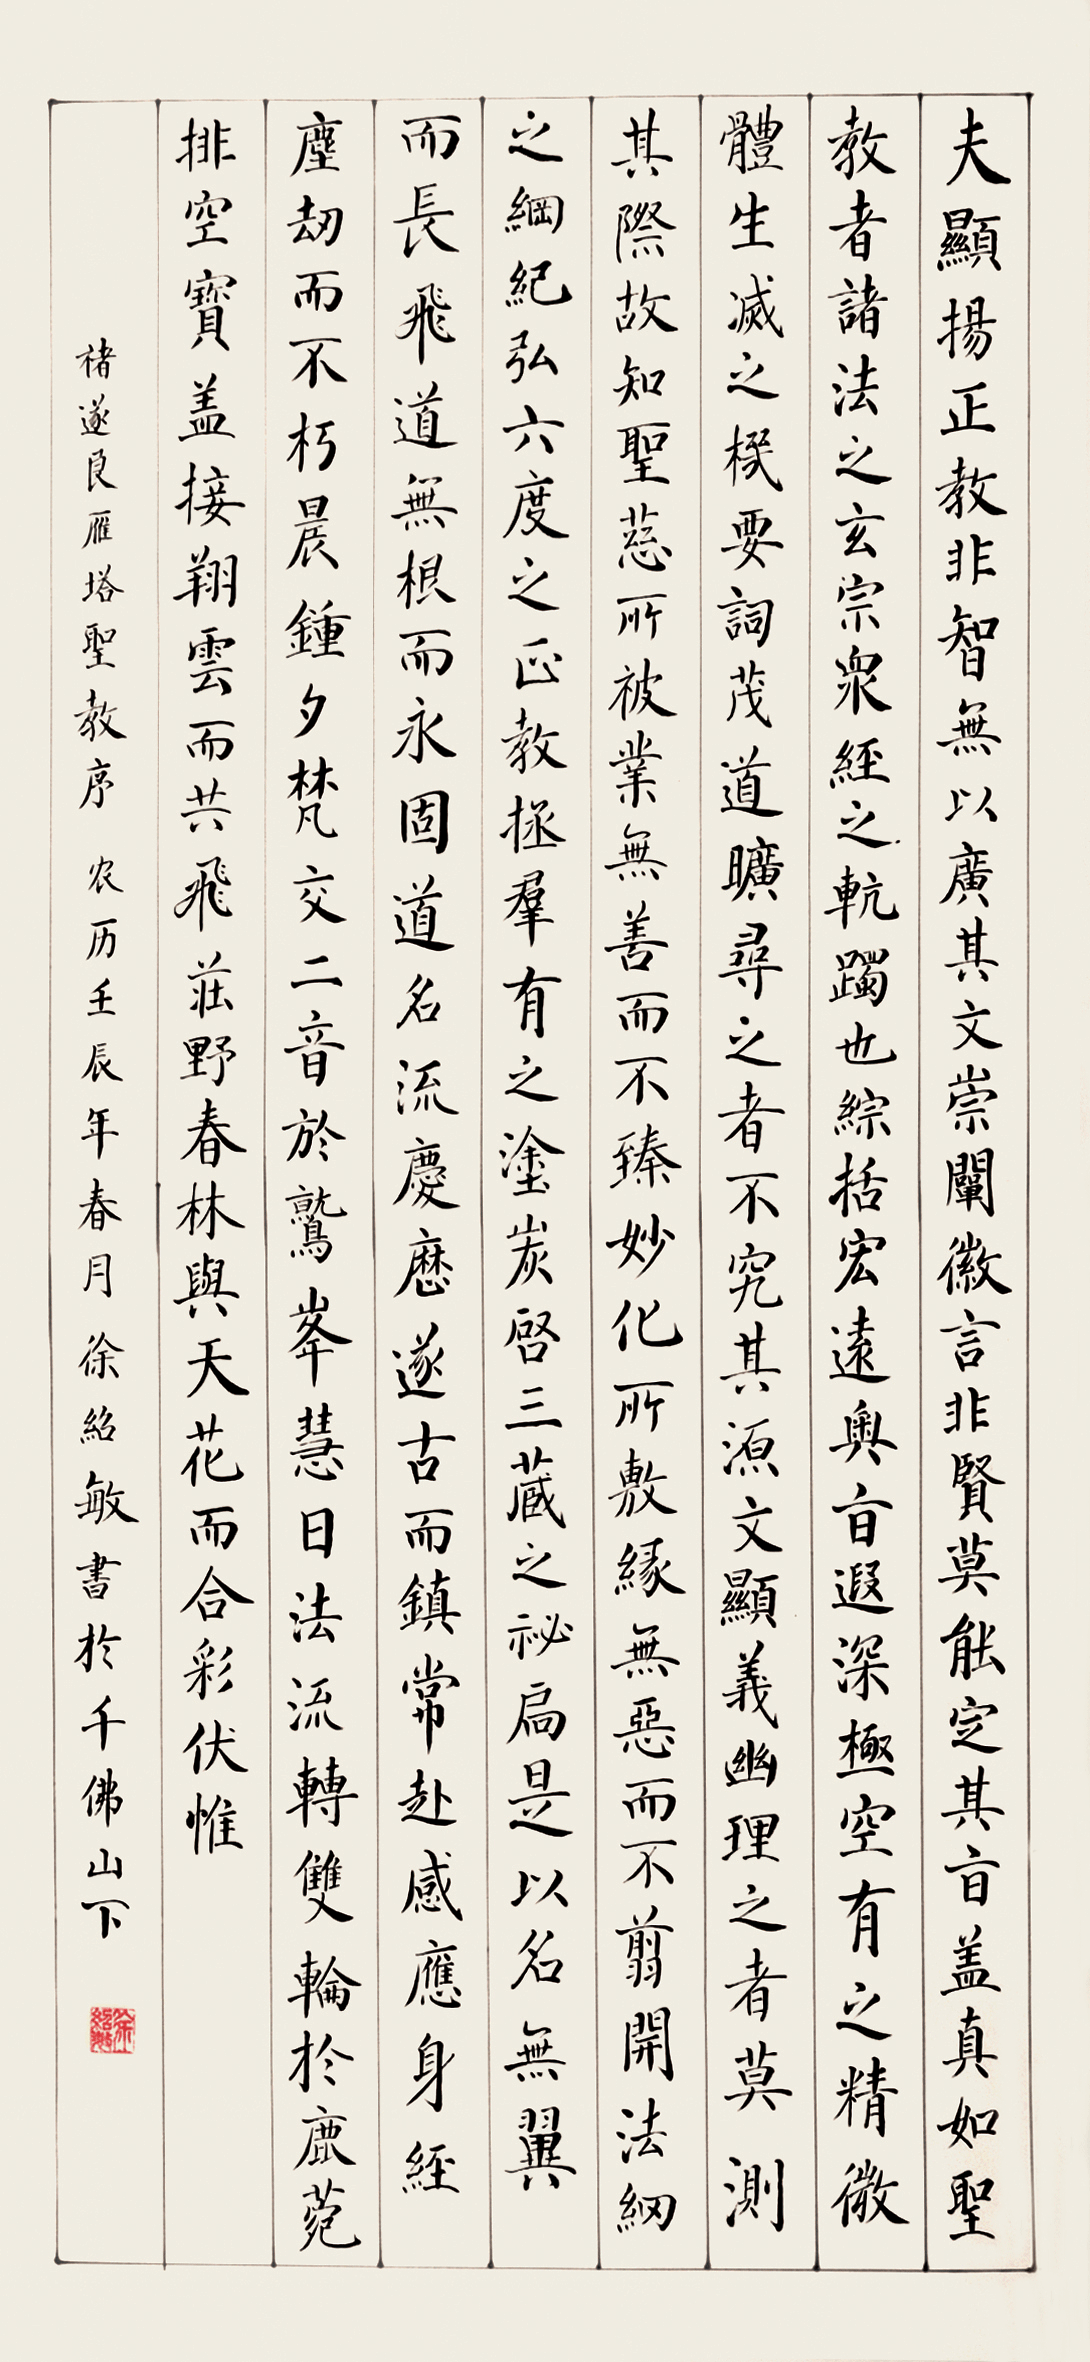 夫顯揚正教非智無以廣其文崇闡微言非賢莫能定其旨盖真如聖
教者諸法之玄宗眾經之軌躅也綜括宏遠奥旨遐深極空有之精微
體生滅之機要詞茂道曠尋之者不究其源文顯義幽理之者莫測
其際故知聖慈所被業無善而不臻妙化所敷緣無惡而不翦開法網
之綱紀弘六度之正教拯羣有之塗炭啓三藏之祕扃是以名無翼
而長飛道無根而永固道名流慶歷遂古而鎮常赴感應身經
塵劫而不朽晨鍾夕梵交二音於鷲峯慧日法流轉雙輪於鹿菀
排空寶盖接翔雲而共飛莊野春林與天花而合彩伏惟
褚遂良雁塔聖教序 农历壬辰年春月徐紹敏書於千佛山下